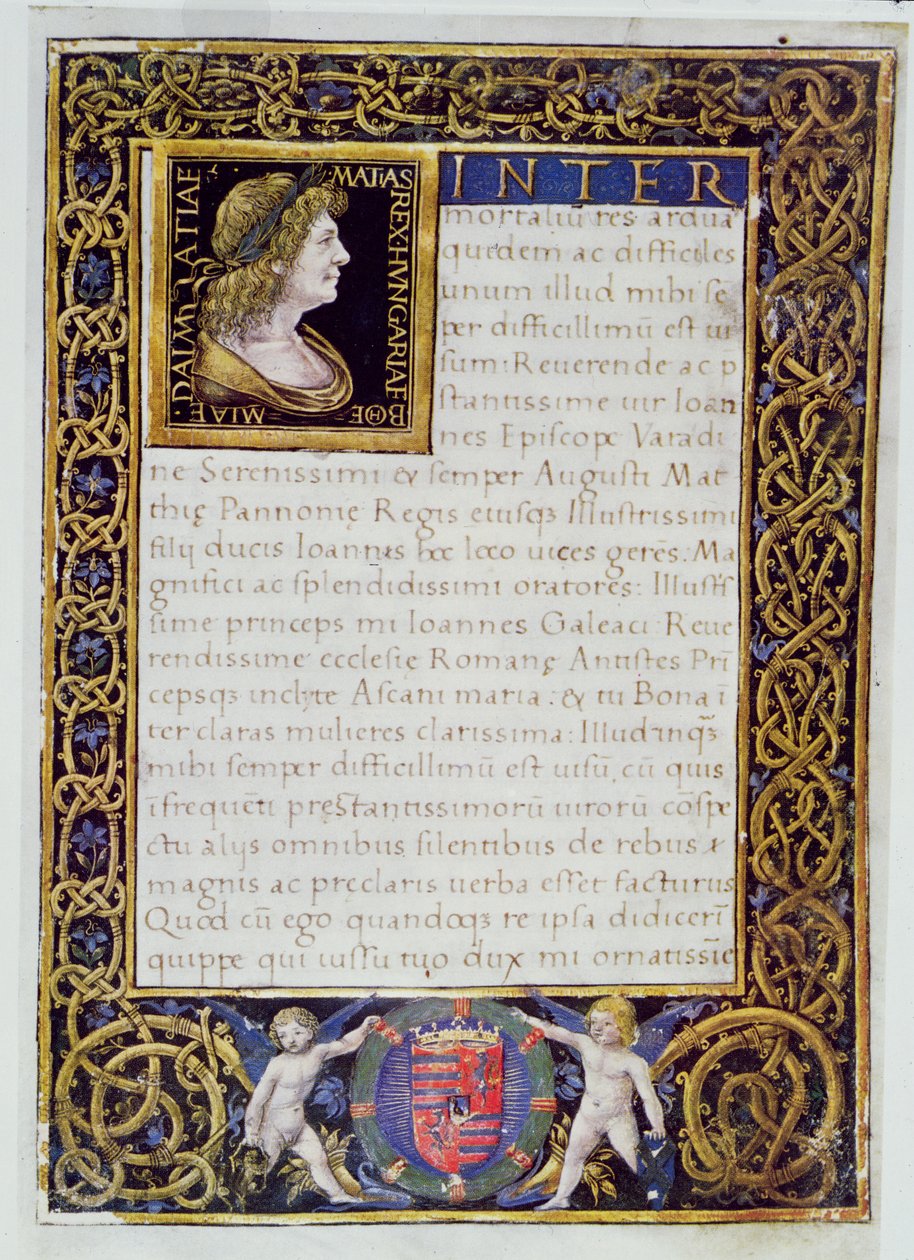 MATIAS
REX·HVNGARIAE
BOE
MIAE
DALMATIAE
INTER
mortaliū res ardua
quedem ac difficiles
unum illud mihi sē
per difficillimū est ui
sum: Reuerende ac p̄
stantissime uir Ioan
nes Episcope Varadi
ne Serenissimi & semper Augusti Mat
thię Pannonię Regis eiusqȝ Illustrissimi
filij ducis Ioannis hoc loco uices gerēs: Ma
gnifici ac splendidissimi oratores: Illustris
sime princeps mi Ioannes Galeaci: Reue
rendissime ecclesię Romanę Antistes Prī
cepsqȝ inclyte Ascani maria: & tu Bona ī
ter claras mulieres clarissima: Illud inqȝ̄
mihi semper difficillimū est uisū, cū quis
ī frequēti pręstantissimorū uirorū cōspe
ctu alijs omnibus silentibus de rebus
magnis ac preclaris uerba esset facturus
Quod cū ego quandoqȝ re ipsa didicerī
quippe qui iussu tuo dux mi ornatissīe